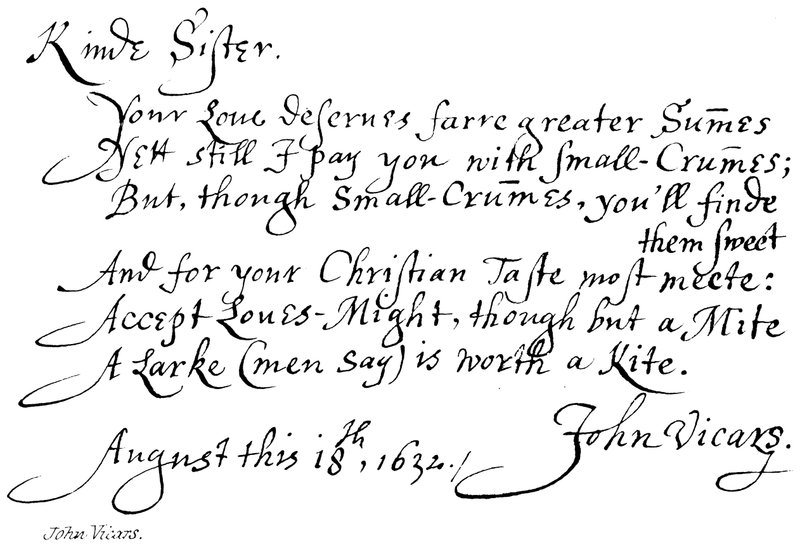 Kinde Sister.
Your Loue deserues farre greater Sum̄es
Yett still I pay you with small-Crum̄es;
But, though Small-Crum̄es, you'll finde
them sweet
And for your Christian Taste most meete:
Accept Loues-Might, though but a Mite
A Larke (men say) is worth a Kite.
August this 18th, 1632./ John Vicars.
John Vicars.